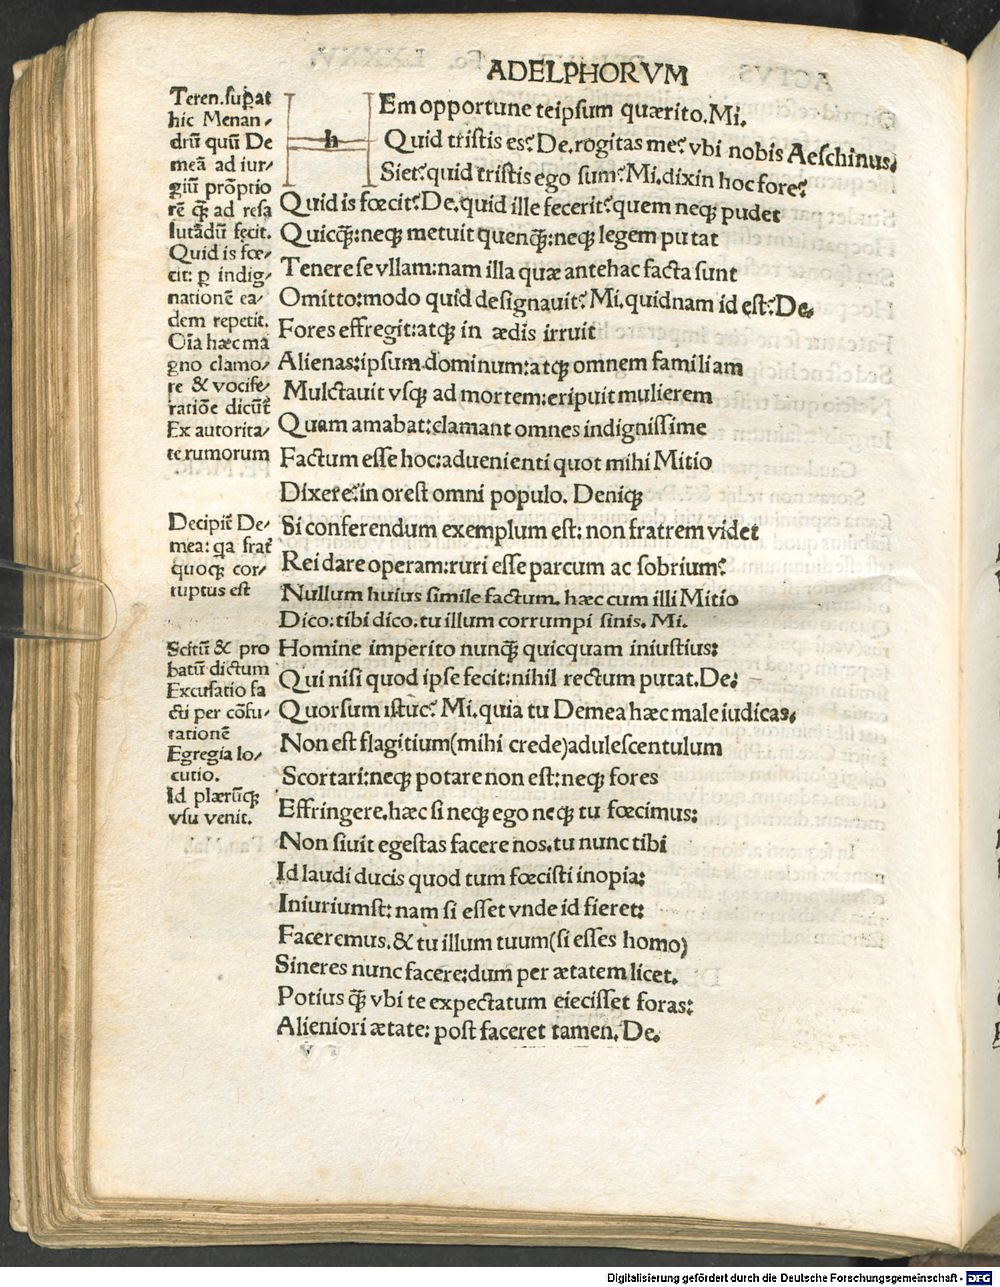 ADELPHORVM
Teren. sup̱at
hic Menan⸗
drū quū De
meā ad iur⸗
giū prōptio
rē q̃ꝫ ad resa
lutādū fecit.
Quid is fœ⸗
cit: ꝑ indig⸗
nationē ea⸗
dem repetit.
Oīa hæc ma
gno clamo⸗
re & vocife⸗
ratiōe dicūt
Ex autorita⸗
te rumorum
Decipit̄ De⸗
mea: qa frat̄
quoqꝫ cor⸗
ruptus est
Scitū & pro
batū dictum
Excusatio fa
cti per cōfu⸗
tationē
Egregia lo⸗
cutio.
Id plærūqꝫ
vsu venit.
h
Em opportune teipsum quærito. Mi.
Quid tristis es? De. rogitas me? vbi nobis Aeschinus.
Siet? quid tristis ego sum? Mi. dixin hoc fore?
Quid is fœcit? De. quid ille fecerit? quem neqꝫ pudet
Quicq̃ꝫ: neqꝫ metuit quenq̃ꝫ: neqꝫ legem putat
Tenere se vllam: nam illa quæ antehac facta sunt
Omitto: modo quid designauit? Mi. quidnam id est? De.
Fores effregit: atqꝫ in ædis irruit
Alienas: ipsum dominum: atqꝫ omnem familiam
Mulctauit vsqꝫ ad mortem: eripuit mulierem
Quam amabat: clamant omnes indignissime
Factum esse hoc: aduenienti quot mihi Mitio
Dixere? in orest omni populo. Deniqꝫ
Si conferendum exemplum est: non fratrem videt
Rei dare operam: ruri esse parcum ac sobrium?
Nullum huius simile factum. hæc cum illi Mitio
Dico: tibi dico: tu illum corrumpi sinis. Mi.
Homine imperito nunq̃ꝫ quicquam iniustius:
Qui nisi quod ipse fecit: nihil rectum putat. De.
Quorsum istuc? Mi. quia tu Demea hæc male iudicas.
Non est flagitium (mihi crede) adulescentulum
Scortari: neqꝫ potare non est: neqꝫ fores
Effringere. hæc si neqꝫ ego neqꝫ tu fœcimus:
Non siuit egestas facere nos. tu nunc tibi
Id laudi ducis quod tum fœcisti inopia:
Iniuriumst: nam si esset vnde id fieret:
Faceremus. & tu illum tuum (si esses homo)
Sineres nunc facere: dum per ætatem licet.
Potius q̃ꝫ vbi te expectatum eiecisset foras:
Alieniori ætate: post faceret tamen. De.
Digitalisierung gefördert durch die Deutsche Forschungsgemeinschaft - DFG